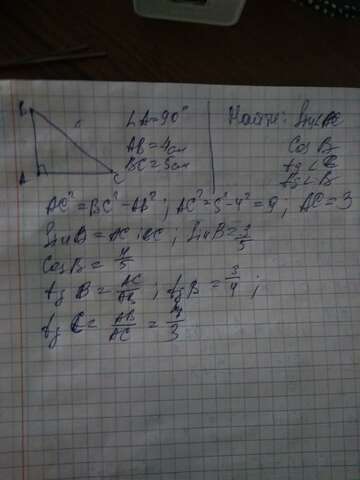 B
∠A=90°
AB=4см
BC=5см
A
C
Найти:
Cos B
tg ∠C
tg ∠B
AC²=BC²-AB²; AC²=5²-4²=9; AC=3
Sin B=AC:BC; Sin B=3/5
Cos B=4/5
tg B=AC/AB; tg B=3/4;
tg C=AB/AC=4/3